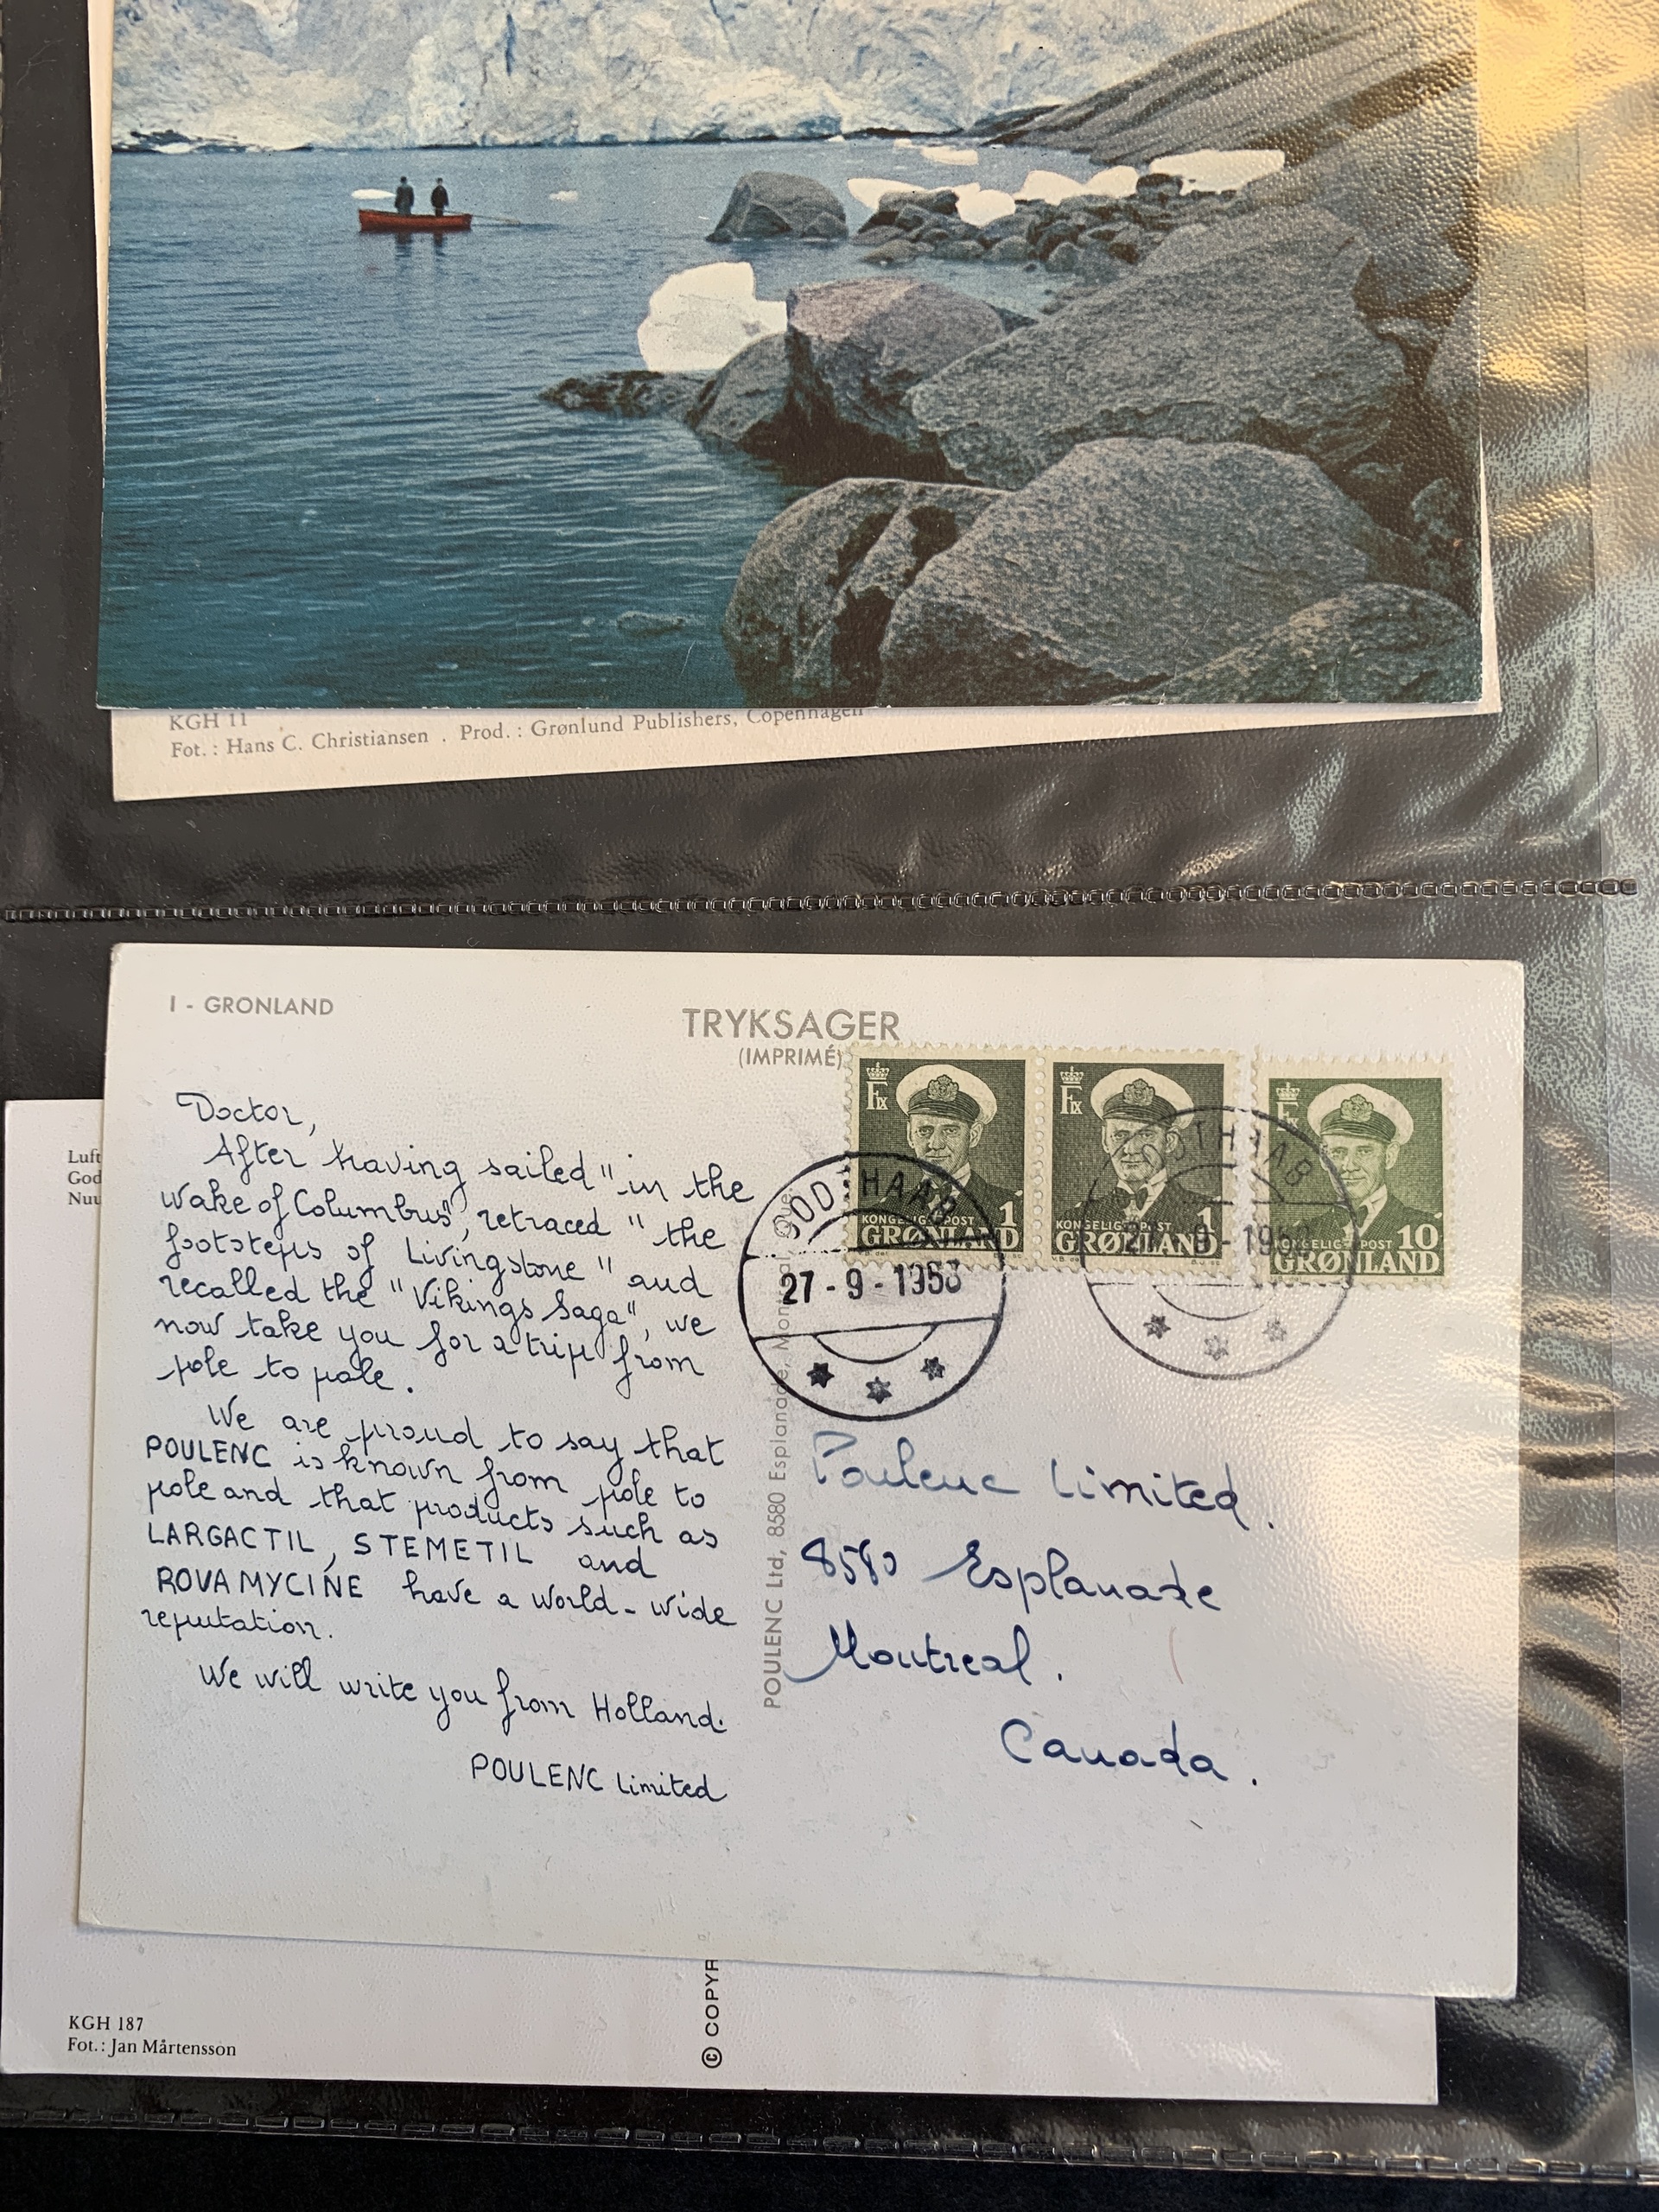 KGH 11
Fot. : Hans C. Christiansen . Prod. : Grønlund Publishers, Copenhagen
I - GRONLAND
TRYKSAGER
(IMPRIMÉ)
Doctor,
After having sailed "in the
wake of Columbus", retraced "the
footsteps of Livingstone" and
recalled the "Vikings Saga", we
now take you for a trip from
pole to pole.
We are proud to say that
POULENC is known from pole to
pole and that products such as
LARGACTIL, STEMETIL and
ROVAMYCINE have a world-wide
reputation.
We will write you from Holland.
POULENC Limited
POULENC Ltd, 8580 Esplanade, Montréal, Qué.
F IX
KONGELIG POST 1
GRØNLAND
F IX
KONGELIG POST 1
GRØNLAND
F IX
KONGELIG POST 10
GRØNLAND
GODTHAAB
27-9-1958
GODTHAAB
27-9-1958
Poulenc Limited.
8580 Esplanade
Montreal.
Canada.
Luft
God
Nuu
KGH 187
Fot.: Jan Mårtensson
© COPYR